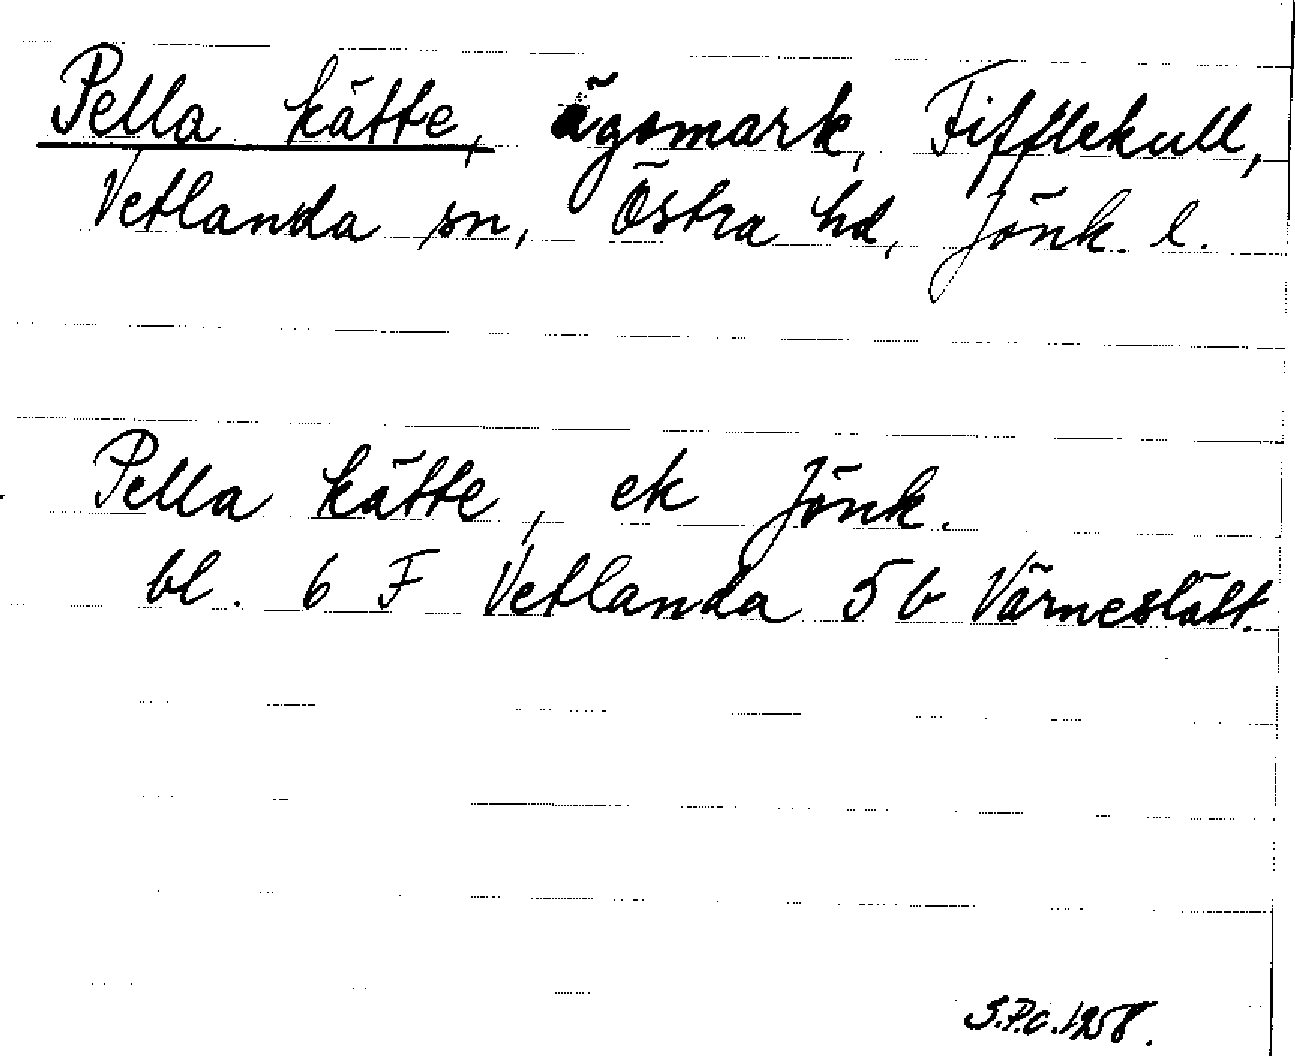 Pella kätte, ägomark, Fifflekull,
Vetlanda sn, Östra hd, Jönk. l.
Pella kätte, ek Jönk.
bl. 6 F Vetlanda 5 b Värneslätt.
S.P.O. 1958.